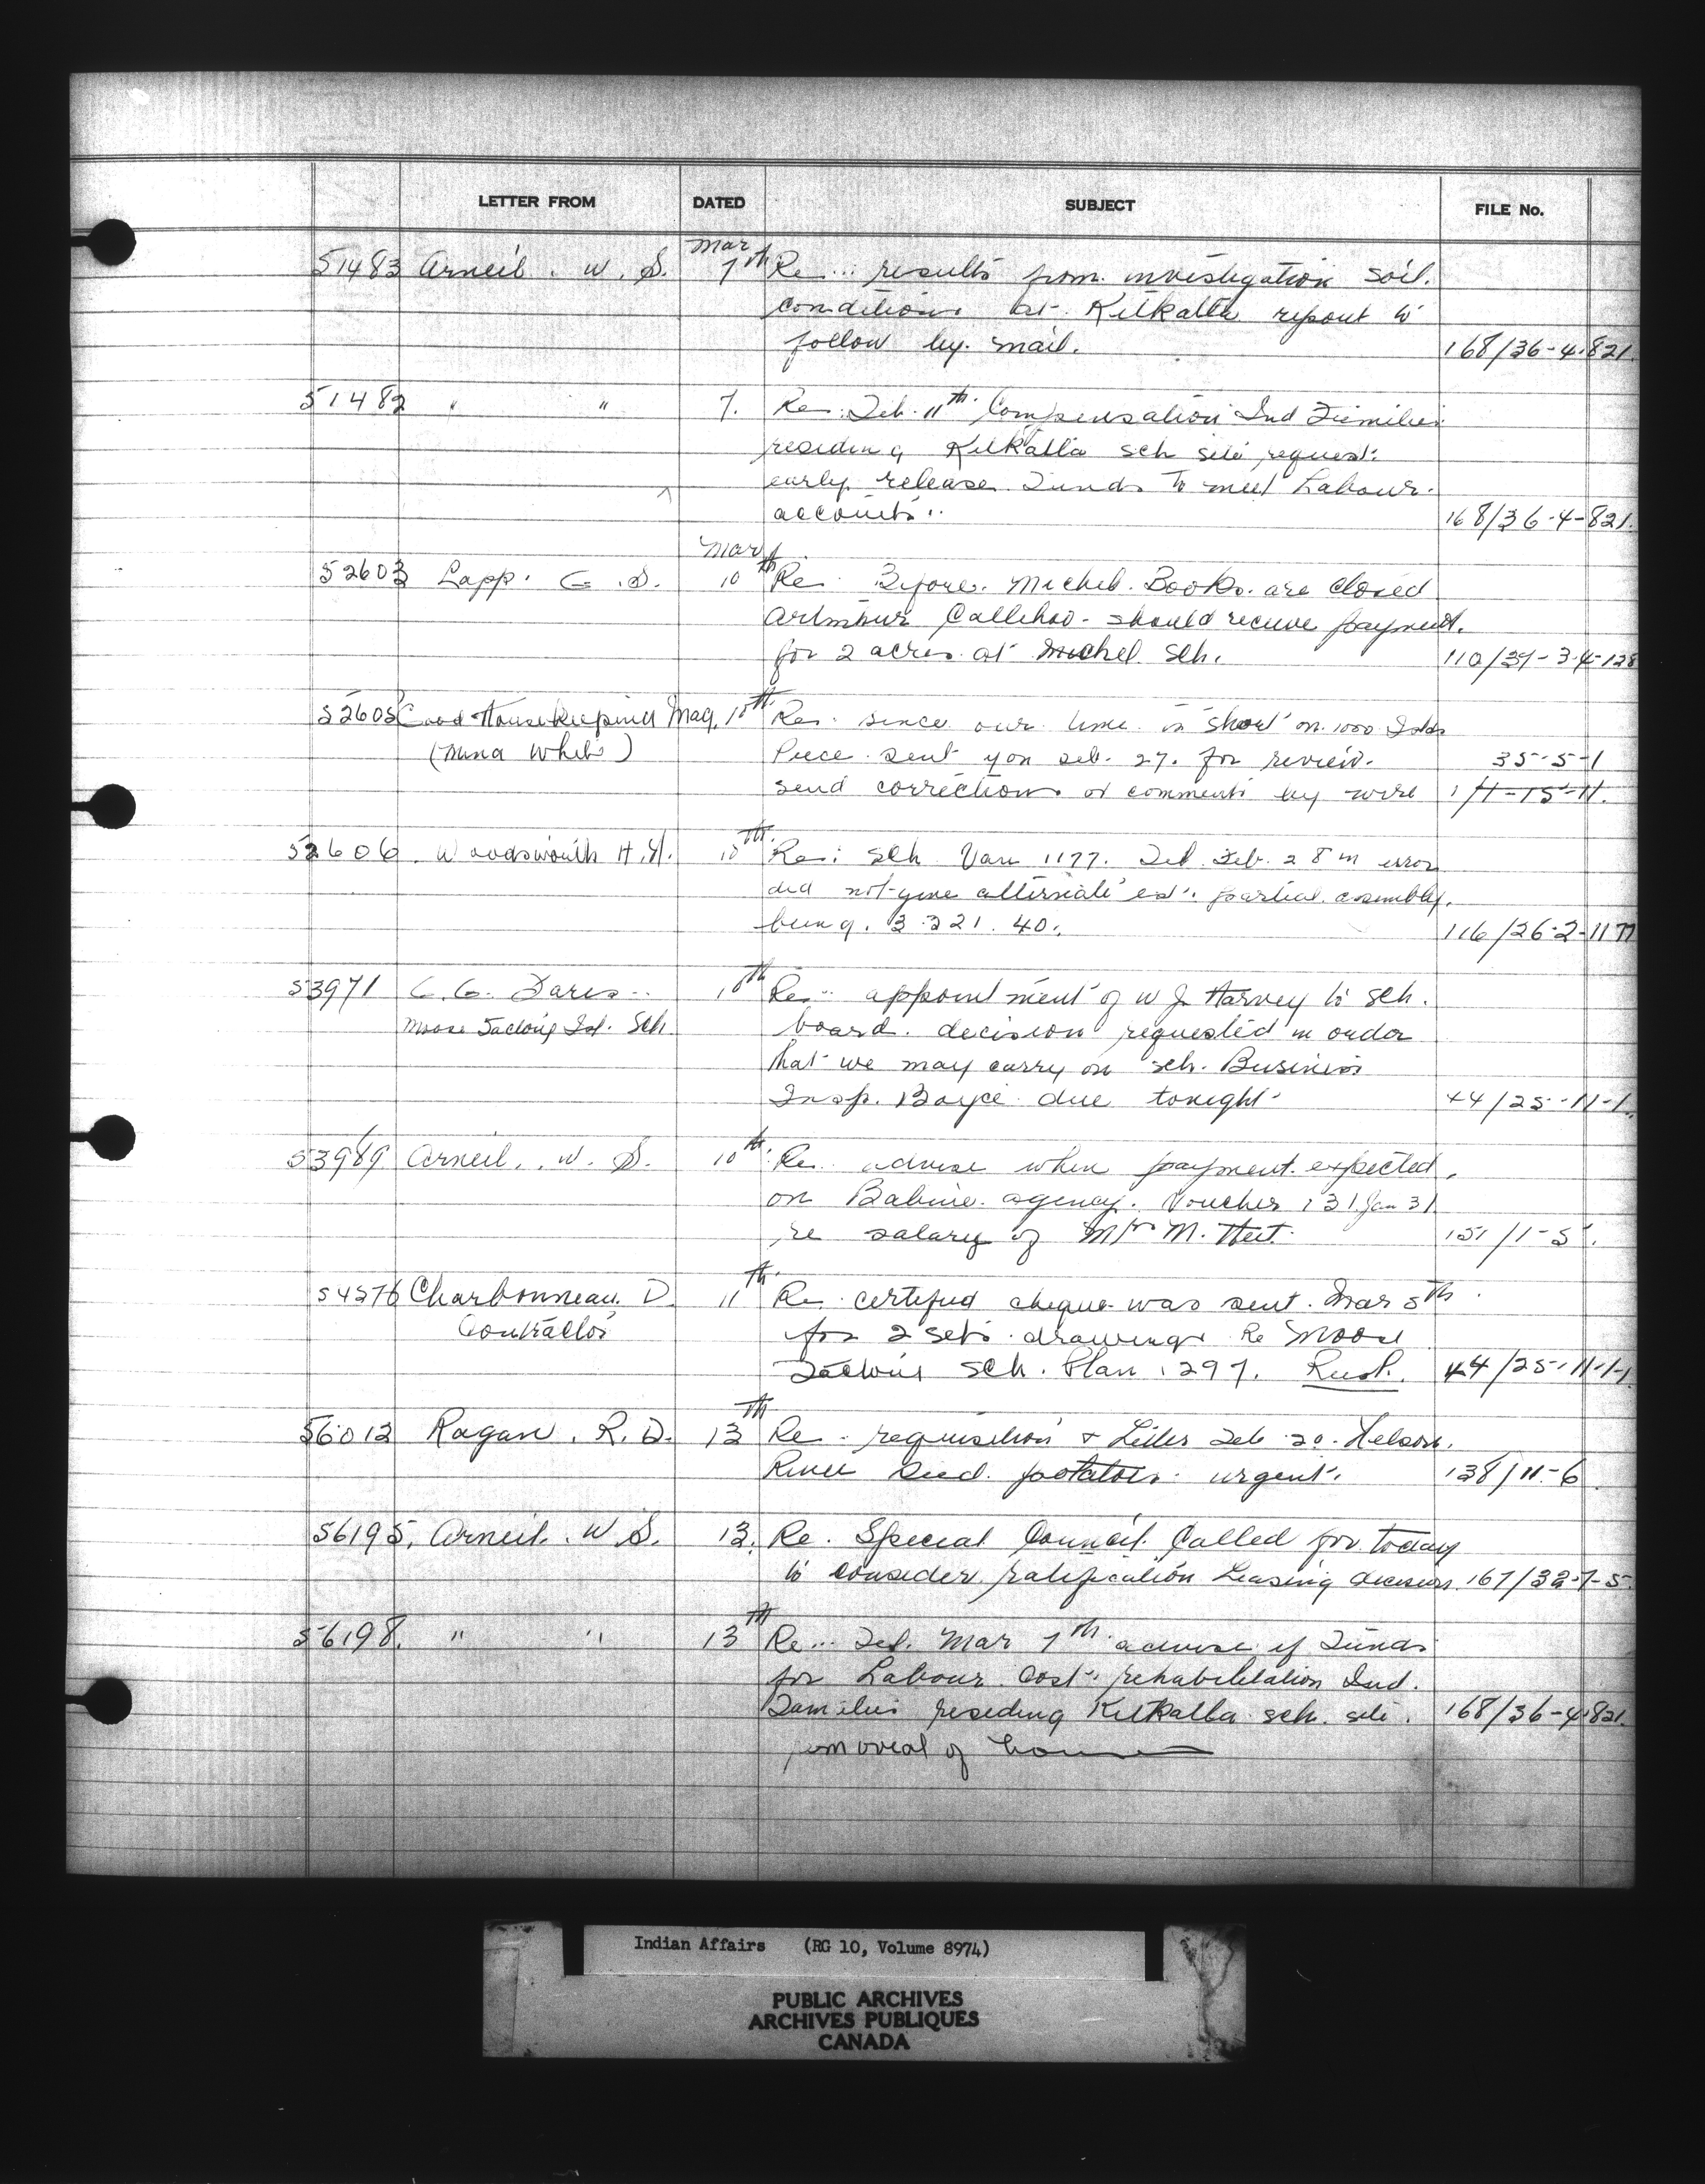 LETTER FROM DATED SUBJECT FILE No.
Mar
51483 Arneil. W. S. 7th Re... results from investigation soil.
conditions at Kitkatla report to
follow by mail. 168/36-4-821
51482 " " 7. Re: Feb. 11th Compensation Ind Families
residing Kitkatla sch site request
early release Funds to meet Labour
accounts. 168/36-4-821.
Mar
52603 Lapp. G. S. 10th Re. Before Michel Books are closed
Callihoo - should receive payment.
for 2 acres at Michel Sch. 110/39-3-4-128
52605 Good Housekeeping Mag. 10th Re. since our time is short on 1000
(Nina White) Piece sent you Feb. 27. for review. 35-5-1
send corrections or comments by wire 1/1-15-11.
52606. Woodsworth H. 10th Re: Sch Van 1177. Tel Feb. 28 in error
did not give alternate est. partial assembly.
being. 3321.40. 116/26-2-1177
53971 10th Re... appointment of W J. Harvey to Sch.
Moose Factory Ind. Sch board. decision requested in order
that we may carry on sch. Business
Insp. Boyce due tonight 44/25-11-1.
53989 Arneil, W. S. 10th Re. advise when payment expected
on Babine agency. Voucher 131 Jan 31
re salary of Mrs M. 151/1-5.
54576 Charbonneau, D. 11th Re. certified cheque was sent Mar 5th
Contractor for 2 sets drawings Re Moose
Factory Sch. Plan 1297. Rush. 44/25-11-1-1
56013 Ragan. R. D. 13th Re - requisition & Letter Feb 20. Nelson
River Seed potatoes urgent. 138/11-6
56195. Arneil. W. S. 13. Re. Special Council Called for today
to consider ratification Leasing decision 167/32-7-5.
56198. " " 13th Re... Tel. Mar 7th advise if Funds
for Labour Cost rehabilitation Ind.
Families residing Kitkatla sch. site. 168/36-4-821.
removal of
Indian Affairs (RG 10, Volume 8974)
PUBLIC ARCHIVES
ARCHIVES PUBLIQUES
CANADA